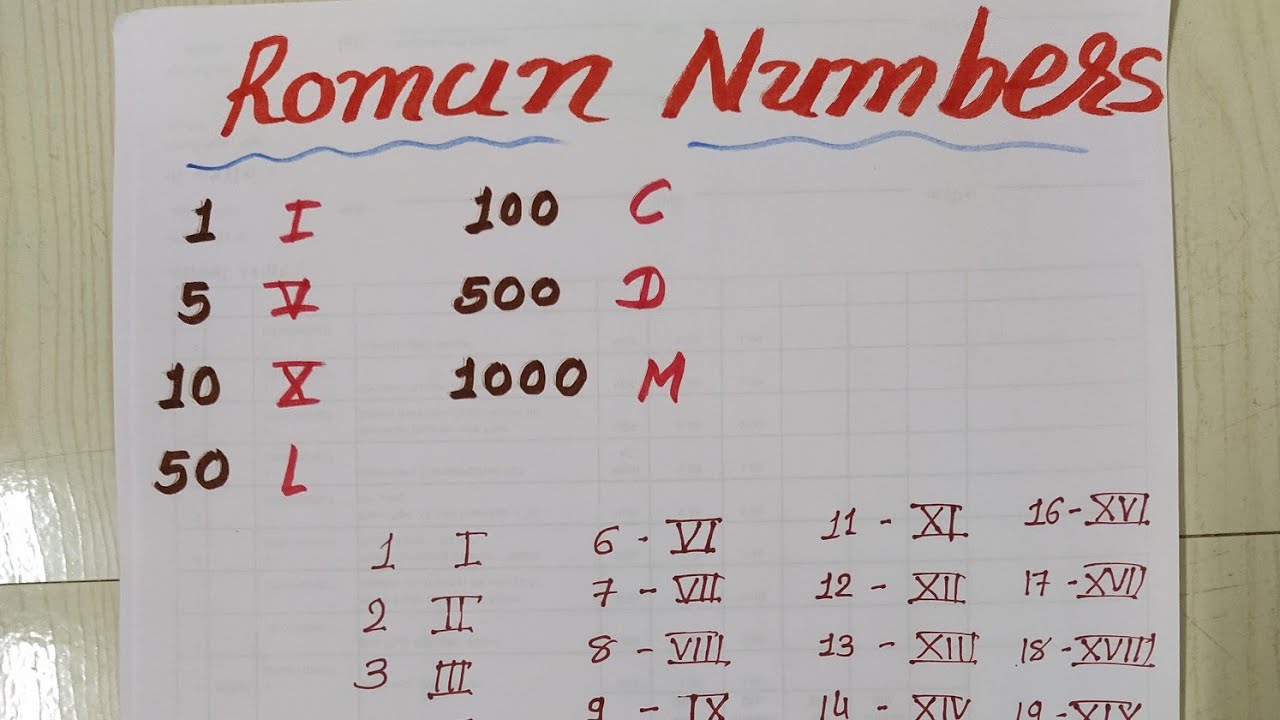 Roman Numbers
1 I 100 C
5 V 500 D
10 X 1000 M
50 L
1 I 6 - VI 11 - XI 16 - XVI
2 II 7 - VII 12 - XII 17 - XVII
3 III 8 - VIII 13 - XIII 18 - XVIII
9 - IX 14 - XIV 19 - XIX